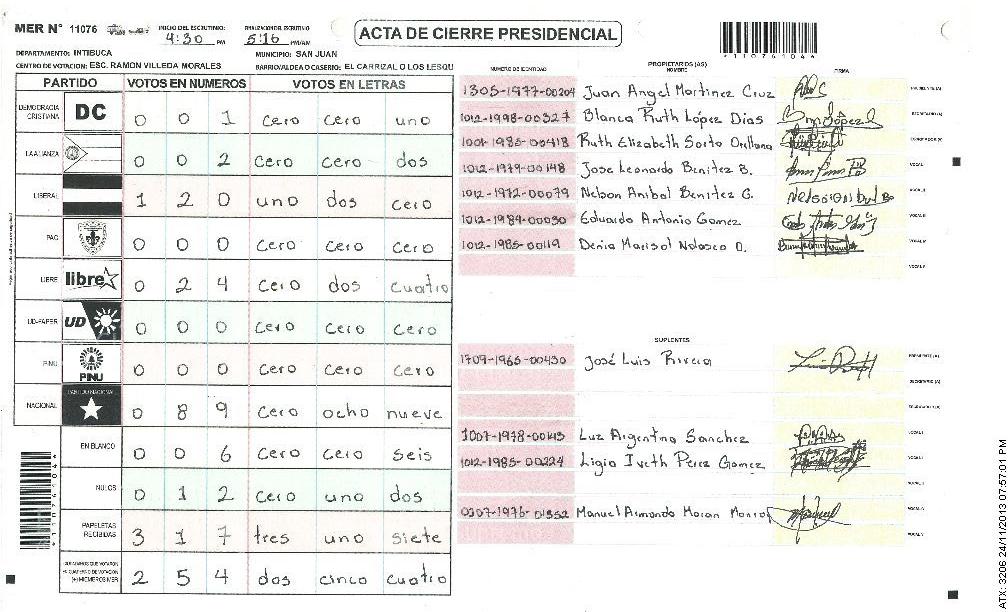 MER N° 11076
INICIO DEL ESCRUTINIO: 4:30 PM
FINALIZACION DEL ESCRUTINIO 5:16 PM/AM
ACTA DE CIERRE PRESIDENCIAL
*110761041*
DEPARTAMENTO: INTIBUCA
MUNICIPIO: SAN JUAN
CENTRO DE VOTACION: ESC. RAMON VILLEDA MORALES
BARRIO/ALDEA O CASERIO: EL CARRIZAL O LOS LESQU
PARTIDO VOTOS EN NUMEROS VOTOS EN LETRAS
DEMOCRACIA CRISTIANA DC 0 0 1 cero cero uno
LA ALIANZA 0 0 2 cero cero dos
LIBERAL 1 2 0 uno dos cero
PAC 0 0 0 cero cero cero
LIBRE libre 0 2 4 cero dos cuatro
UD-FAPER UD 0 0 0 cero cero cero
PINU PINU 0 0 0 cero cero cero
NACIONAL PARTIDO NACIONAL 0 8 9 cero ocho nueve
EN BLANCO 0 0 6 cero cero seis
NULOS 0 1 2 cero uno dos
PAPELETAS RECIBIDAS 3 1 7 tres uno siete
CIUDADANOS QUE VOTARON EN CUADERNO DE VOTACION (+) MIEMBROS MER 2 5 4 dos cinco cuatro
NUMERO DE IDENTIDAD
PROPIETARIOS (AS)
NOMBRE
FIRMA
1305-1977-00204 Juan Angel Martinez Cruz PRESIDENTE (A)
1012-1998-00327 Blanca Ruth López Dias SECRETARIO (A)
1001-1985-00418 Ruth Elizabeth Sorto Orellana ESCRUTADOR (A)
1012-1979-00148 Jose Leonardo Benitez B. VOCAL I
1012-1972-00079 Nelson Anibal Benitez G. VOCAL II
1012-1989-00030 Eduardo Antonio Gomez VOCAL III
1012-1985-00119 Denia Marisol Nolasco O. VOCAL IV
VOCAL V
SUPLENTES
1709-1965-00430 José Luis Rivera PRESIDENTE (A)
SECRETARIO (A)
ESCRUTADOR (A)
1007-1978-00143 Luz Argentina Sanchez VOCAL I
1012-1985-00224 Ligia Iveth Perez Gomez VOCAL II
VOCAL III
0307-1976-01352 Manuel Armando Moran VOCAL IV
VOCAL V
ATX: 3206 24/11/2013 07:57:01 PM